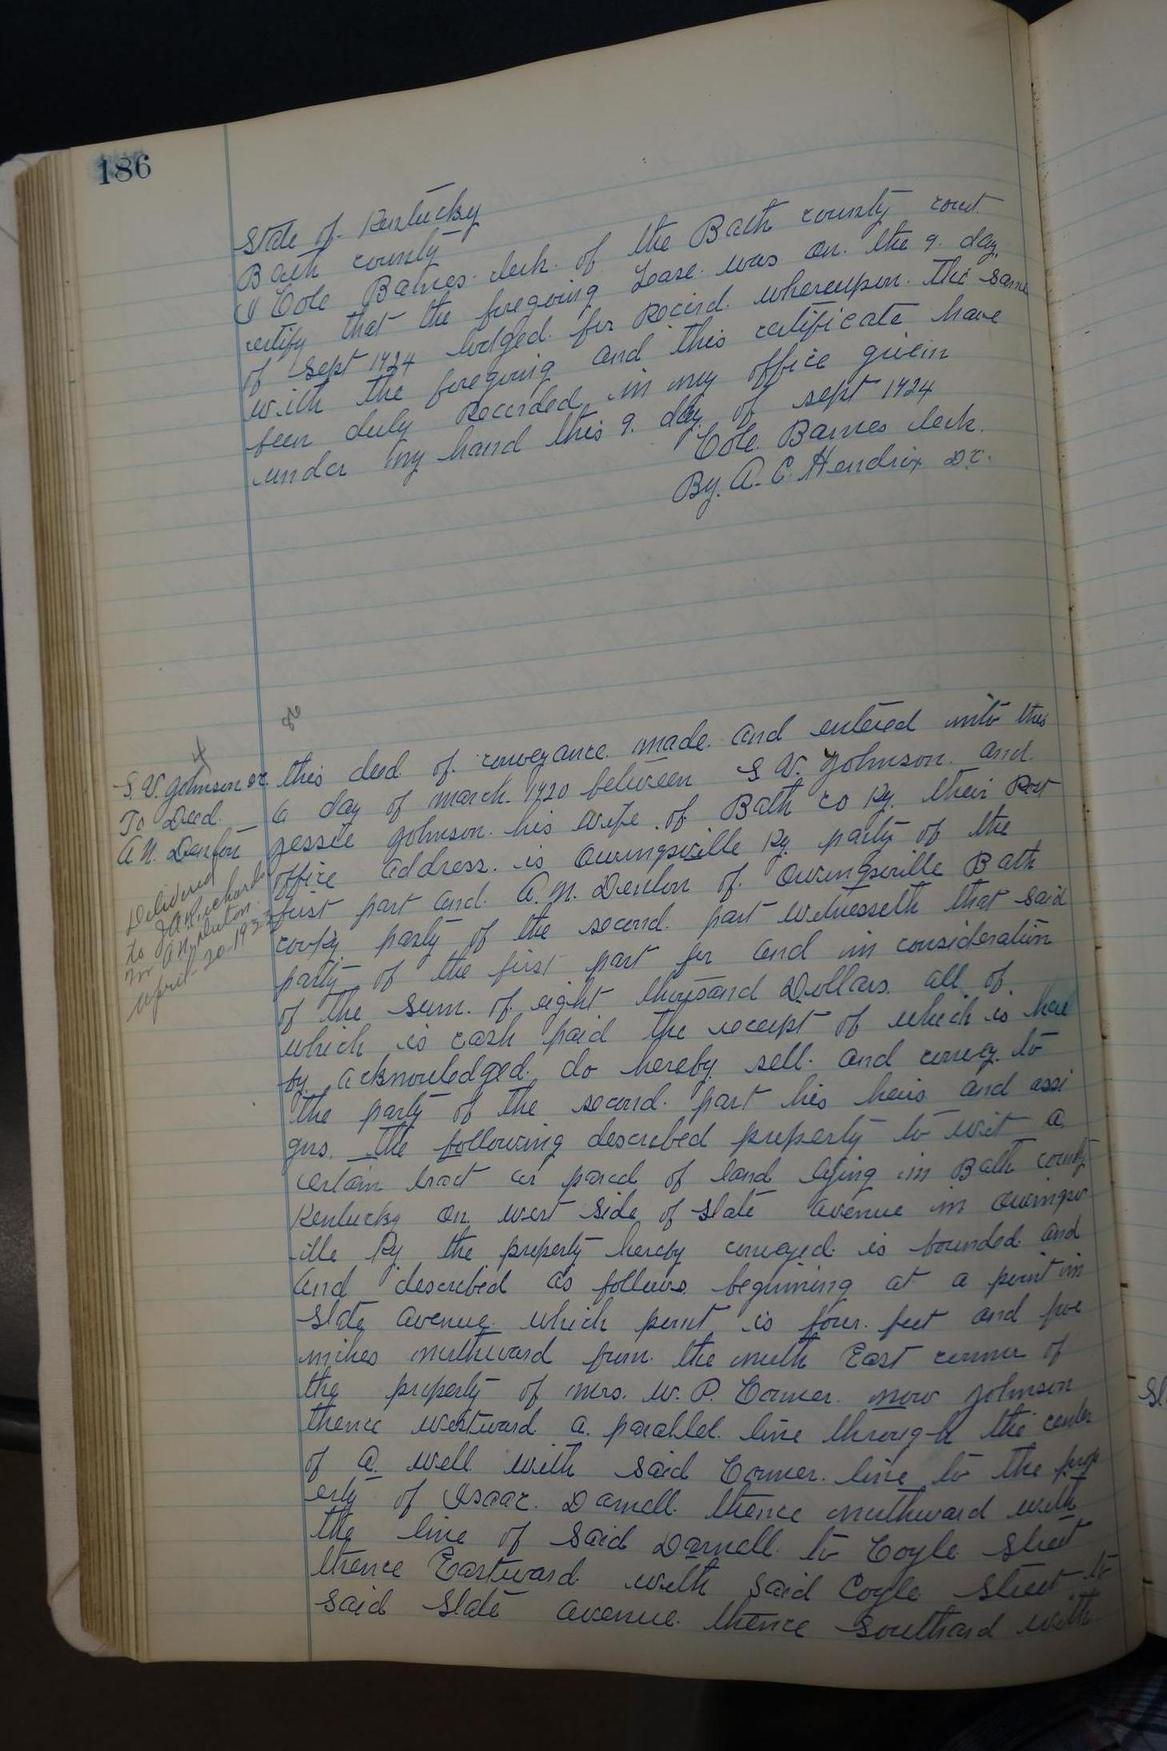 186
State of Kentucky
Bath county
I Cole Barnes clerk of the Bath county court
certify that the foregoing Lease was on the 9. day
of Sept 1924 lodged for Record whereupon the same
with the foregoing and this certificate have
been duly Recorded in my office given
under my hand this 9. day of sept 1924
Cole Barnes clerk.
By. A. C. Hendrix D.C.
S. W. Johnson
To Deed.
A. M. Denton
Delivered
to
Mr A M Denton
April 20.
this deed of conveyance made and entered into this
6 day of march 1920 between S W. Johnson and
Jessee Johnson his wife of Bath co Ky. their Post
office address is Owingsville Ky party of the
first part and A. M. Denton of Owingsville Bath
co Ky party of the second part witnesseth that said
party of the first part for and in consideration
of the sum of eight thousand Dollars all of
which is cash paid the receipt of which is here
by acknowledged do hereby sell and convey to
the party of the second part his heirs and assi
gns. the following described property to wit a
certain tract or parcel of land lying in Bath county
Kentucky on west side of Slate avenue in Owingsv
ille Ky the property hereby conveyed is bounded and
and described as follows beginning at a point in
Slate avenue which point is four feet and five
inches northward from the north East corner of
the property of Mrs. W. P. Conner now Johnson
thence westward a parallel line through the center
of a well with said Conner line to the prop
erty of Isaac Darnell thence northward with
the line of said Darnell to Coyle street
thence Eastward with said Coyle street to
said Slate avenue thence Southard with